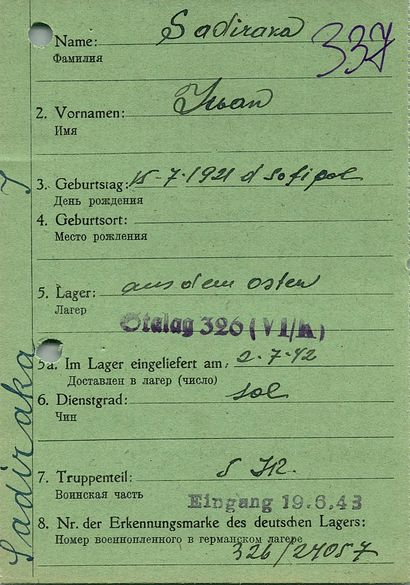 Name: Sadiraka 337
Фамилия
2. Vornamen: Iwan
Имя
3. Geburtstag: 15-7-1921 d Sofipol
День рождения
4. Geburtsort:
Место рождения
5. Lager: aus dem osten
Лагер
Stalag 326 (VI/K)
5a. Im Lager eingeliefert am: 2-7-42
Доставлен в лагер (число)
6. Dienstgrad: sol
Чин
7. Truppenteil: 5 IR.
Воинская часть
Eingang 19.6.43
8. Nr. der Erkennungsmarke des deutschen Lagers:
Номер военнопленного в германском лагере
326/24057
Sadiraka J